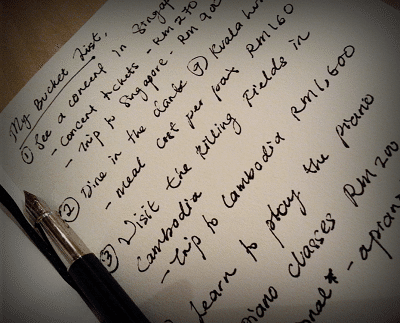 My Bucket List.
① See a concert in Singap
- Concert tickets - RM 270
- Trip to Singapore - RM 90
② Dine in the dark @ Kuala Lum
- meal cost per pax RM160
③ Visit the Killing Fields in
Cambodia
- Trip to Cambodia RM1,600
Learn to play the piano
piano classes RM 200
onal* - a piano